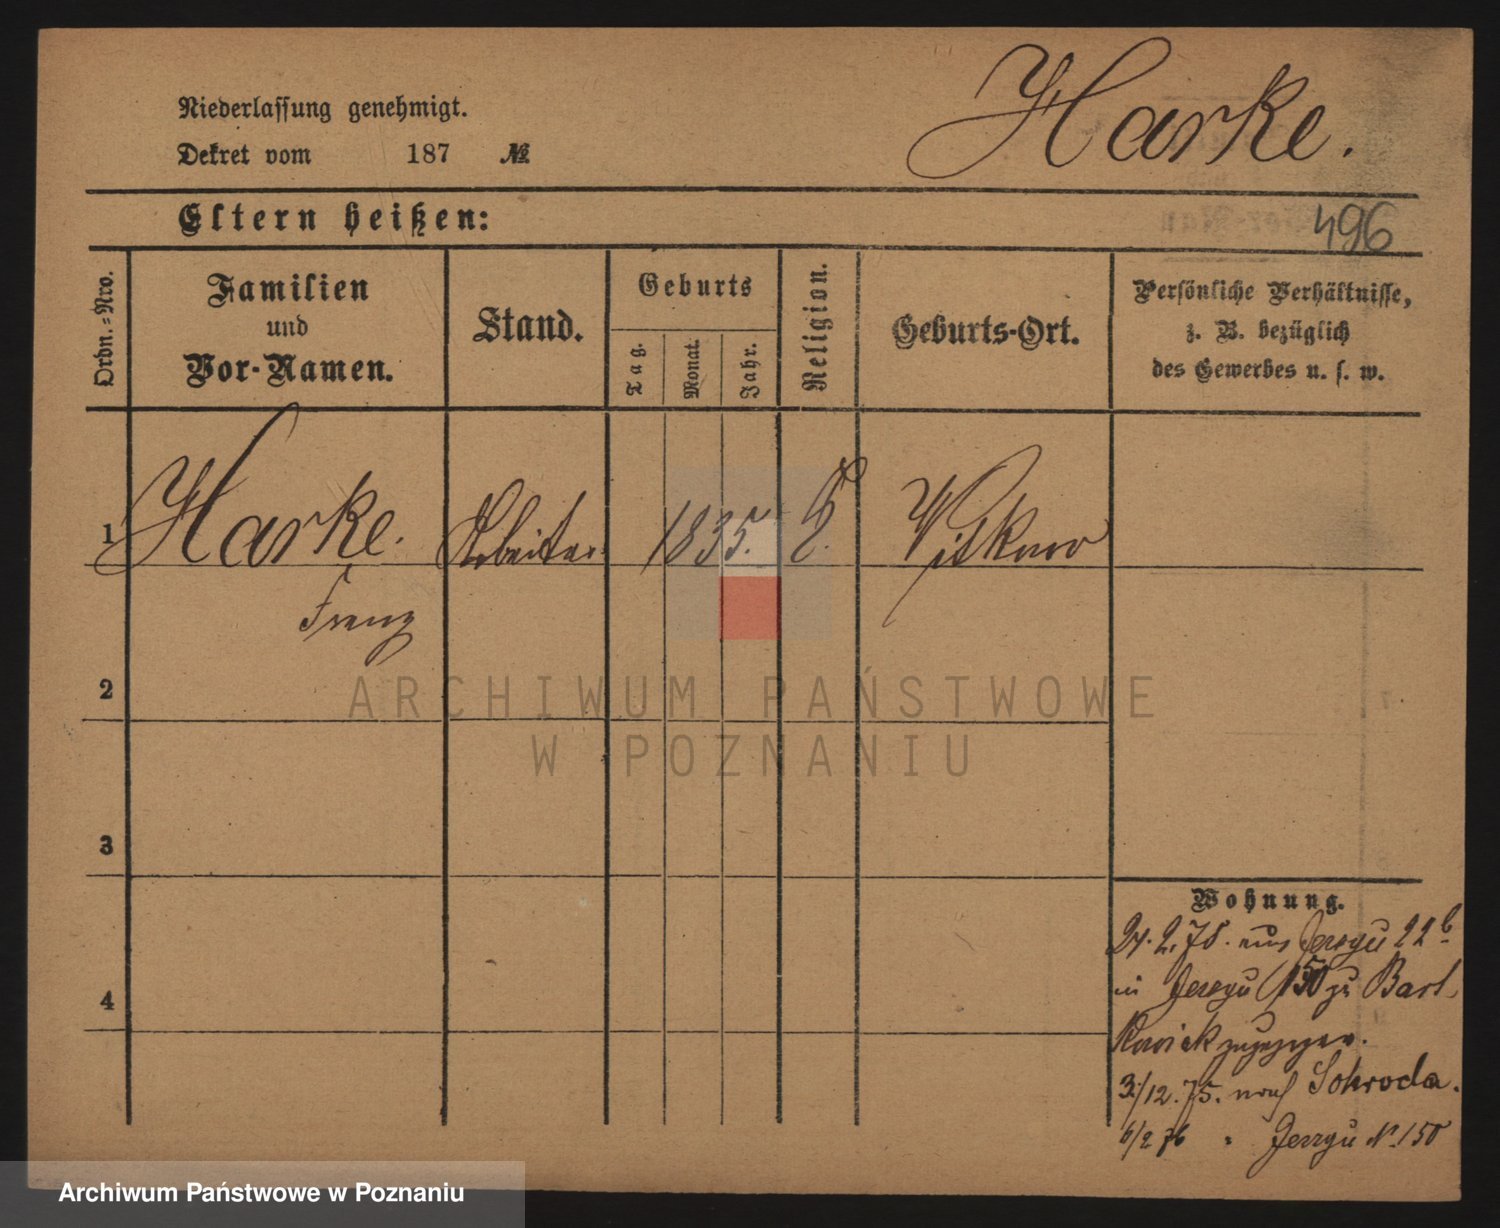 Niederlassung genehmigt.
Dekret vom 187 №
Harke.
Eltern heißen:
496
Ordn.-Nro.
Familien
und
Vor-Namen.
Stand.
Geburts
Tag.
Monat.
Jahr.
Religion.
Geburts-Ort.
Persönliche Verhältnisse,
z. B. bezüglich
des Gewerbes u. s. w.
1 Harke. Arbeiter 1835. Witkowo
Franz
2
ARCHIWUM PAŃSTWOWE
W POZNANIU
3
Wohnung.
aus Jerzyu 22b
4
in Jerzyu 150 zu Bart
kowiak zugezogen.
3/12.75. nach Schroda.
6/2 76 " Jerzyu № 150
Archiwum Państwowe w Poznaniu